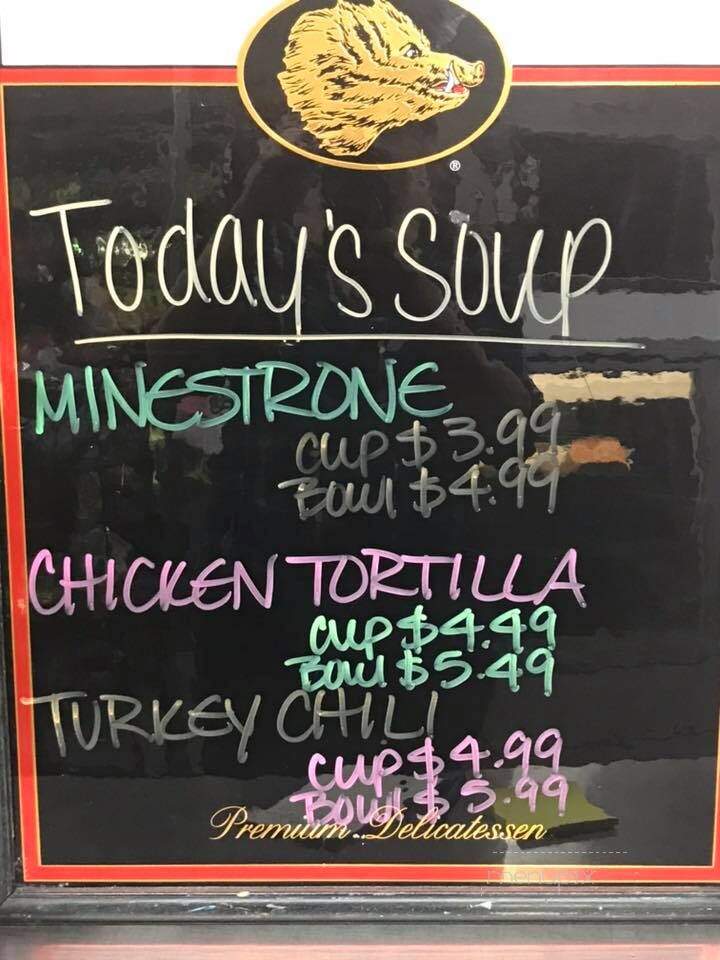 ®
Today's Soup
MINESTRONE
CUP $3.99
BOWl $4.99
CHICKEN TORTILLA
CUP $4.49
BOWl $5.49
TURKEY CHILI
CUP $4.99
BOWl $5.99
Premium Delicatessen